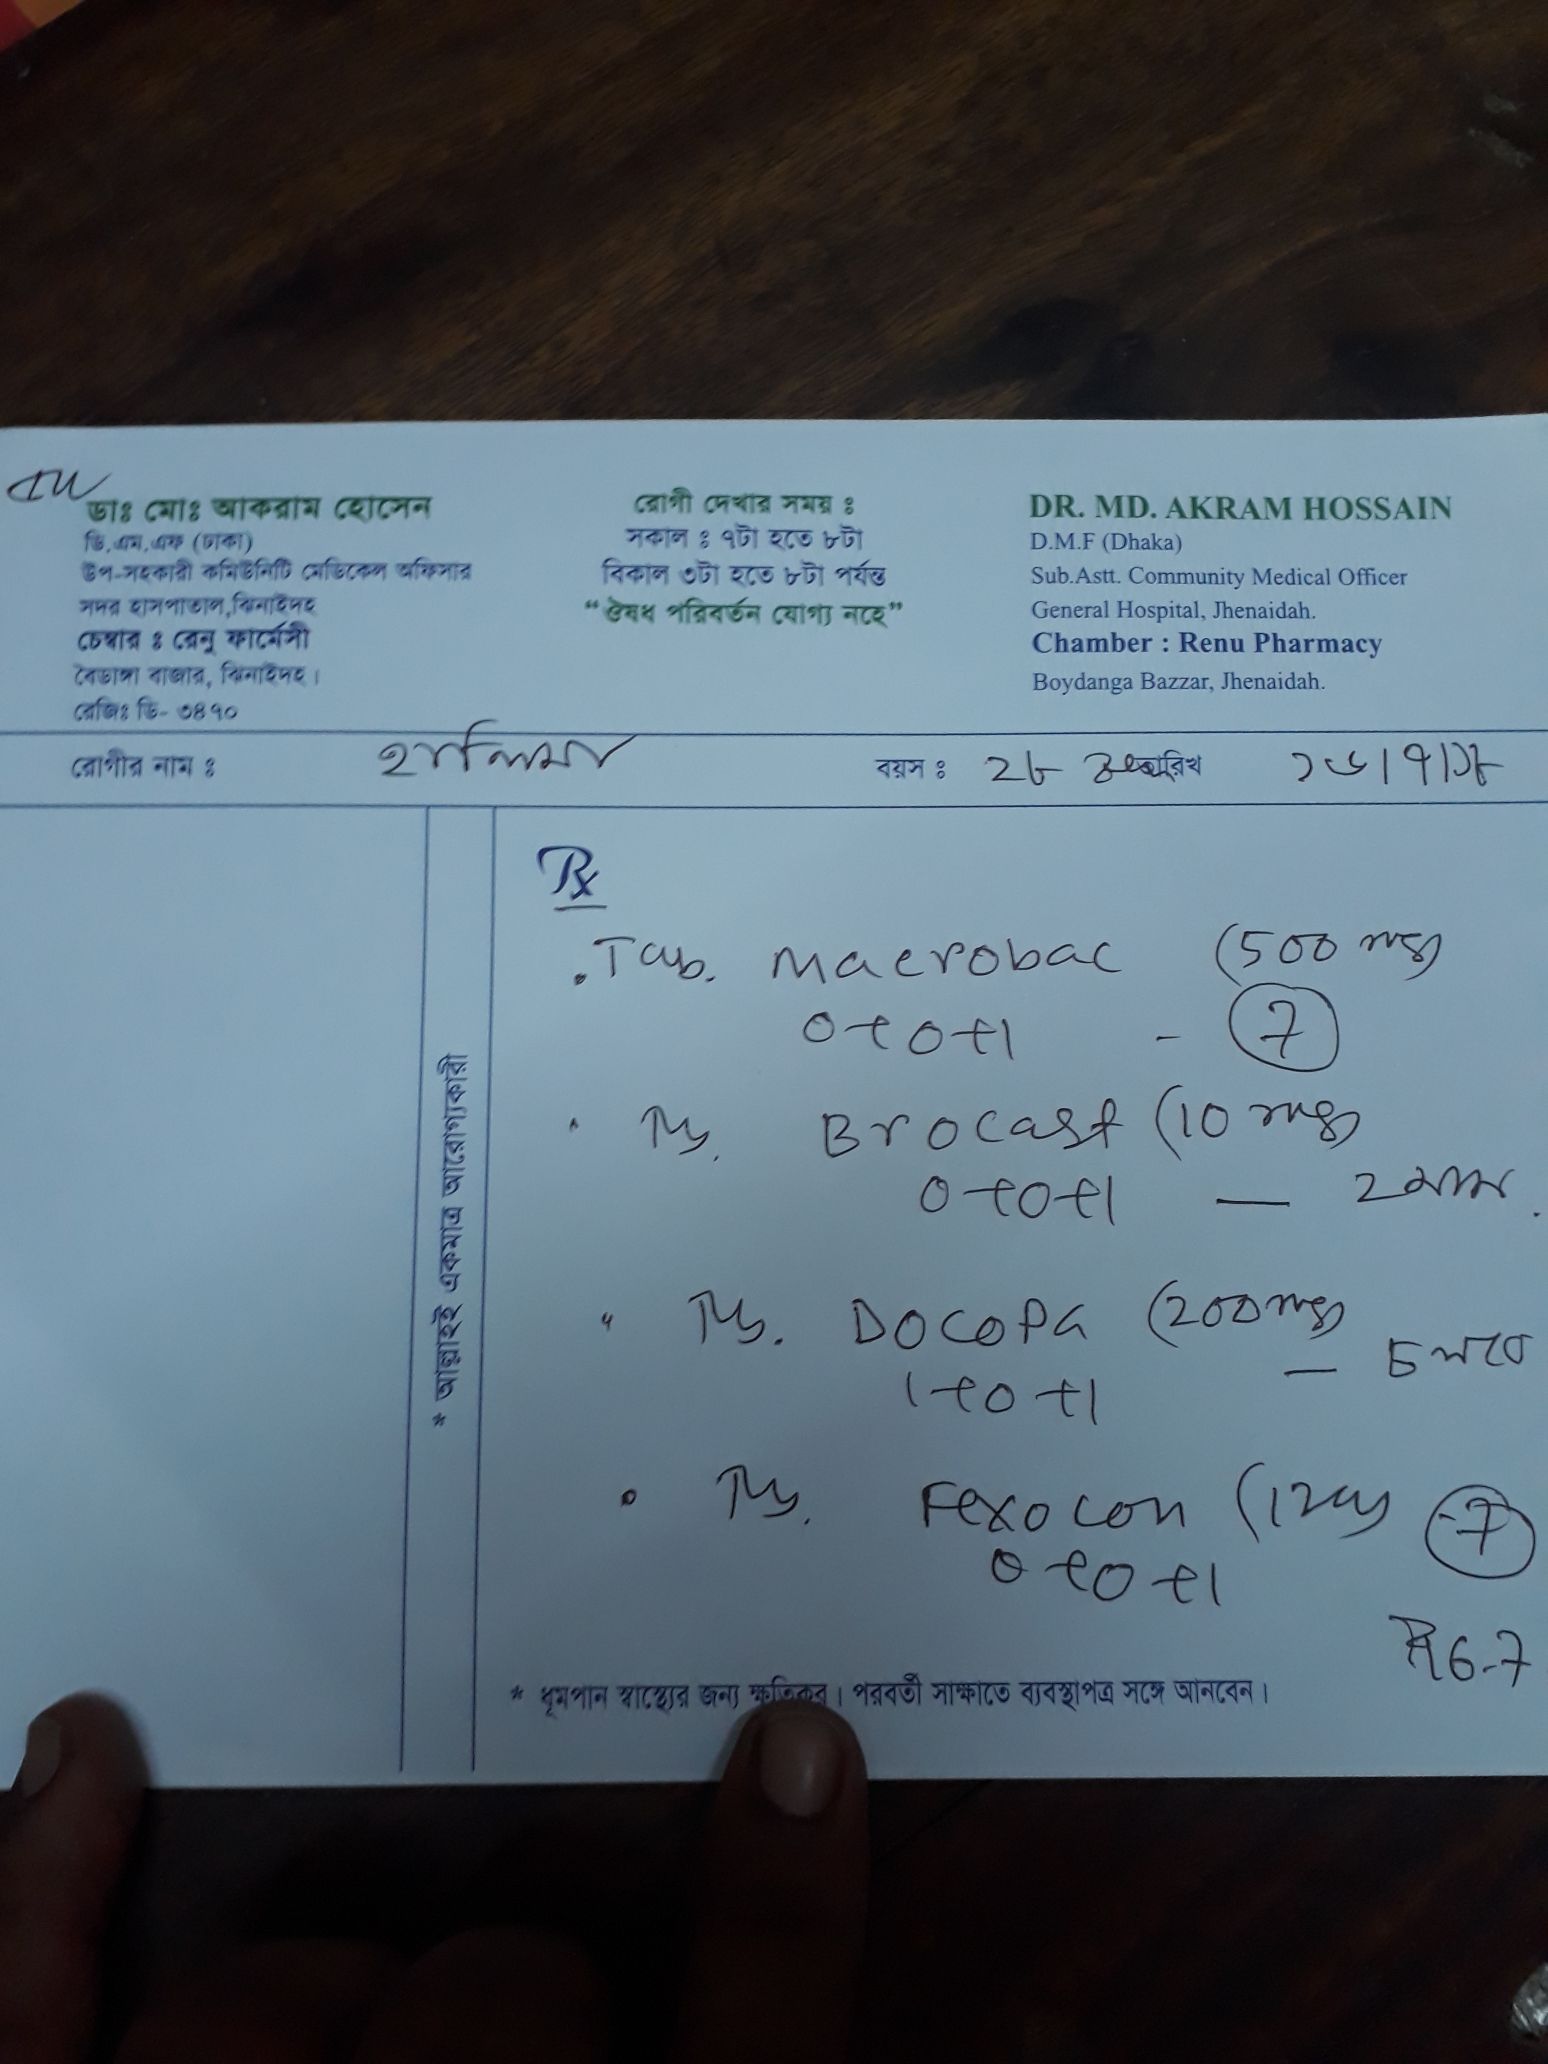 ডাঃ মোঃ আকরাম হোসেন
ডি.এম.এফ (ঢাকা)
উপ-সহকারী কমিউনিটি মেডিকেল অফিসার
সদর হাসপাতাল,ঝিনাইদহ
চেম্বার ঃ রেনু ফার্মেসী
বৈডাঙ্গা বাজার, ঝিনাইদহ।
রেজিঃ ডি- ৩৪৭০
রোগী দেখার সময় ঃ
সকাল ঃ ৭টা হতে ৮টা
বিকাল ৩টা হতে ৮টা পর্যন্ত
“ঔষধ পরিবর্তন যোগ্য নহে”
DR. MD. AKRAM HOSSAIN
D.M.F (Dhaka)
Sub.Astt. Community Medical Officer
General Hospital, Jhenaidah.
Chamber : Renu Pharmacy
Boydanga Bazzar, Jhenaidah.
রোগীর নাম ঃ বয়স ঃ ২৮ তারিখ
* আল্লাহই একমাত্র আরোগ্যকারী
Rx
. Tab. Macrobac (500 mg)
0+0+1 - 7
Tab. Brocast (10 mg)
0+0+1 — ২ মাস
Tab. DOCOPA (200 mg)
1+0+1 —
Tab. Fexocon (120) -7
0+0+1
6-7
* ধূমপান স্বাস্থ্যের জন্য ক্ষতিকর। পরবর্তী সাক্ষাতে ব্যবস্থাপত্র সঙ্গে আনবেন।